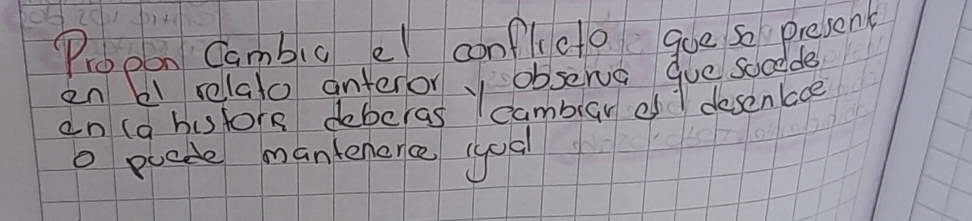 Propon Cambia el conflicto que se present
en el relato anteror y observa que sucede
en la histora deberas cambiar el desenlace
o puede mantenerce igual